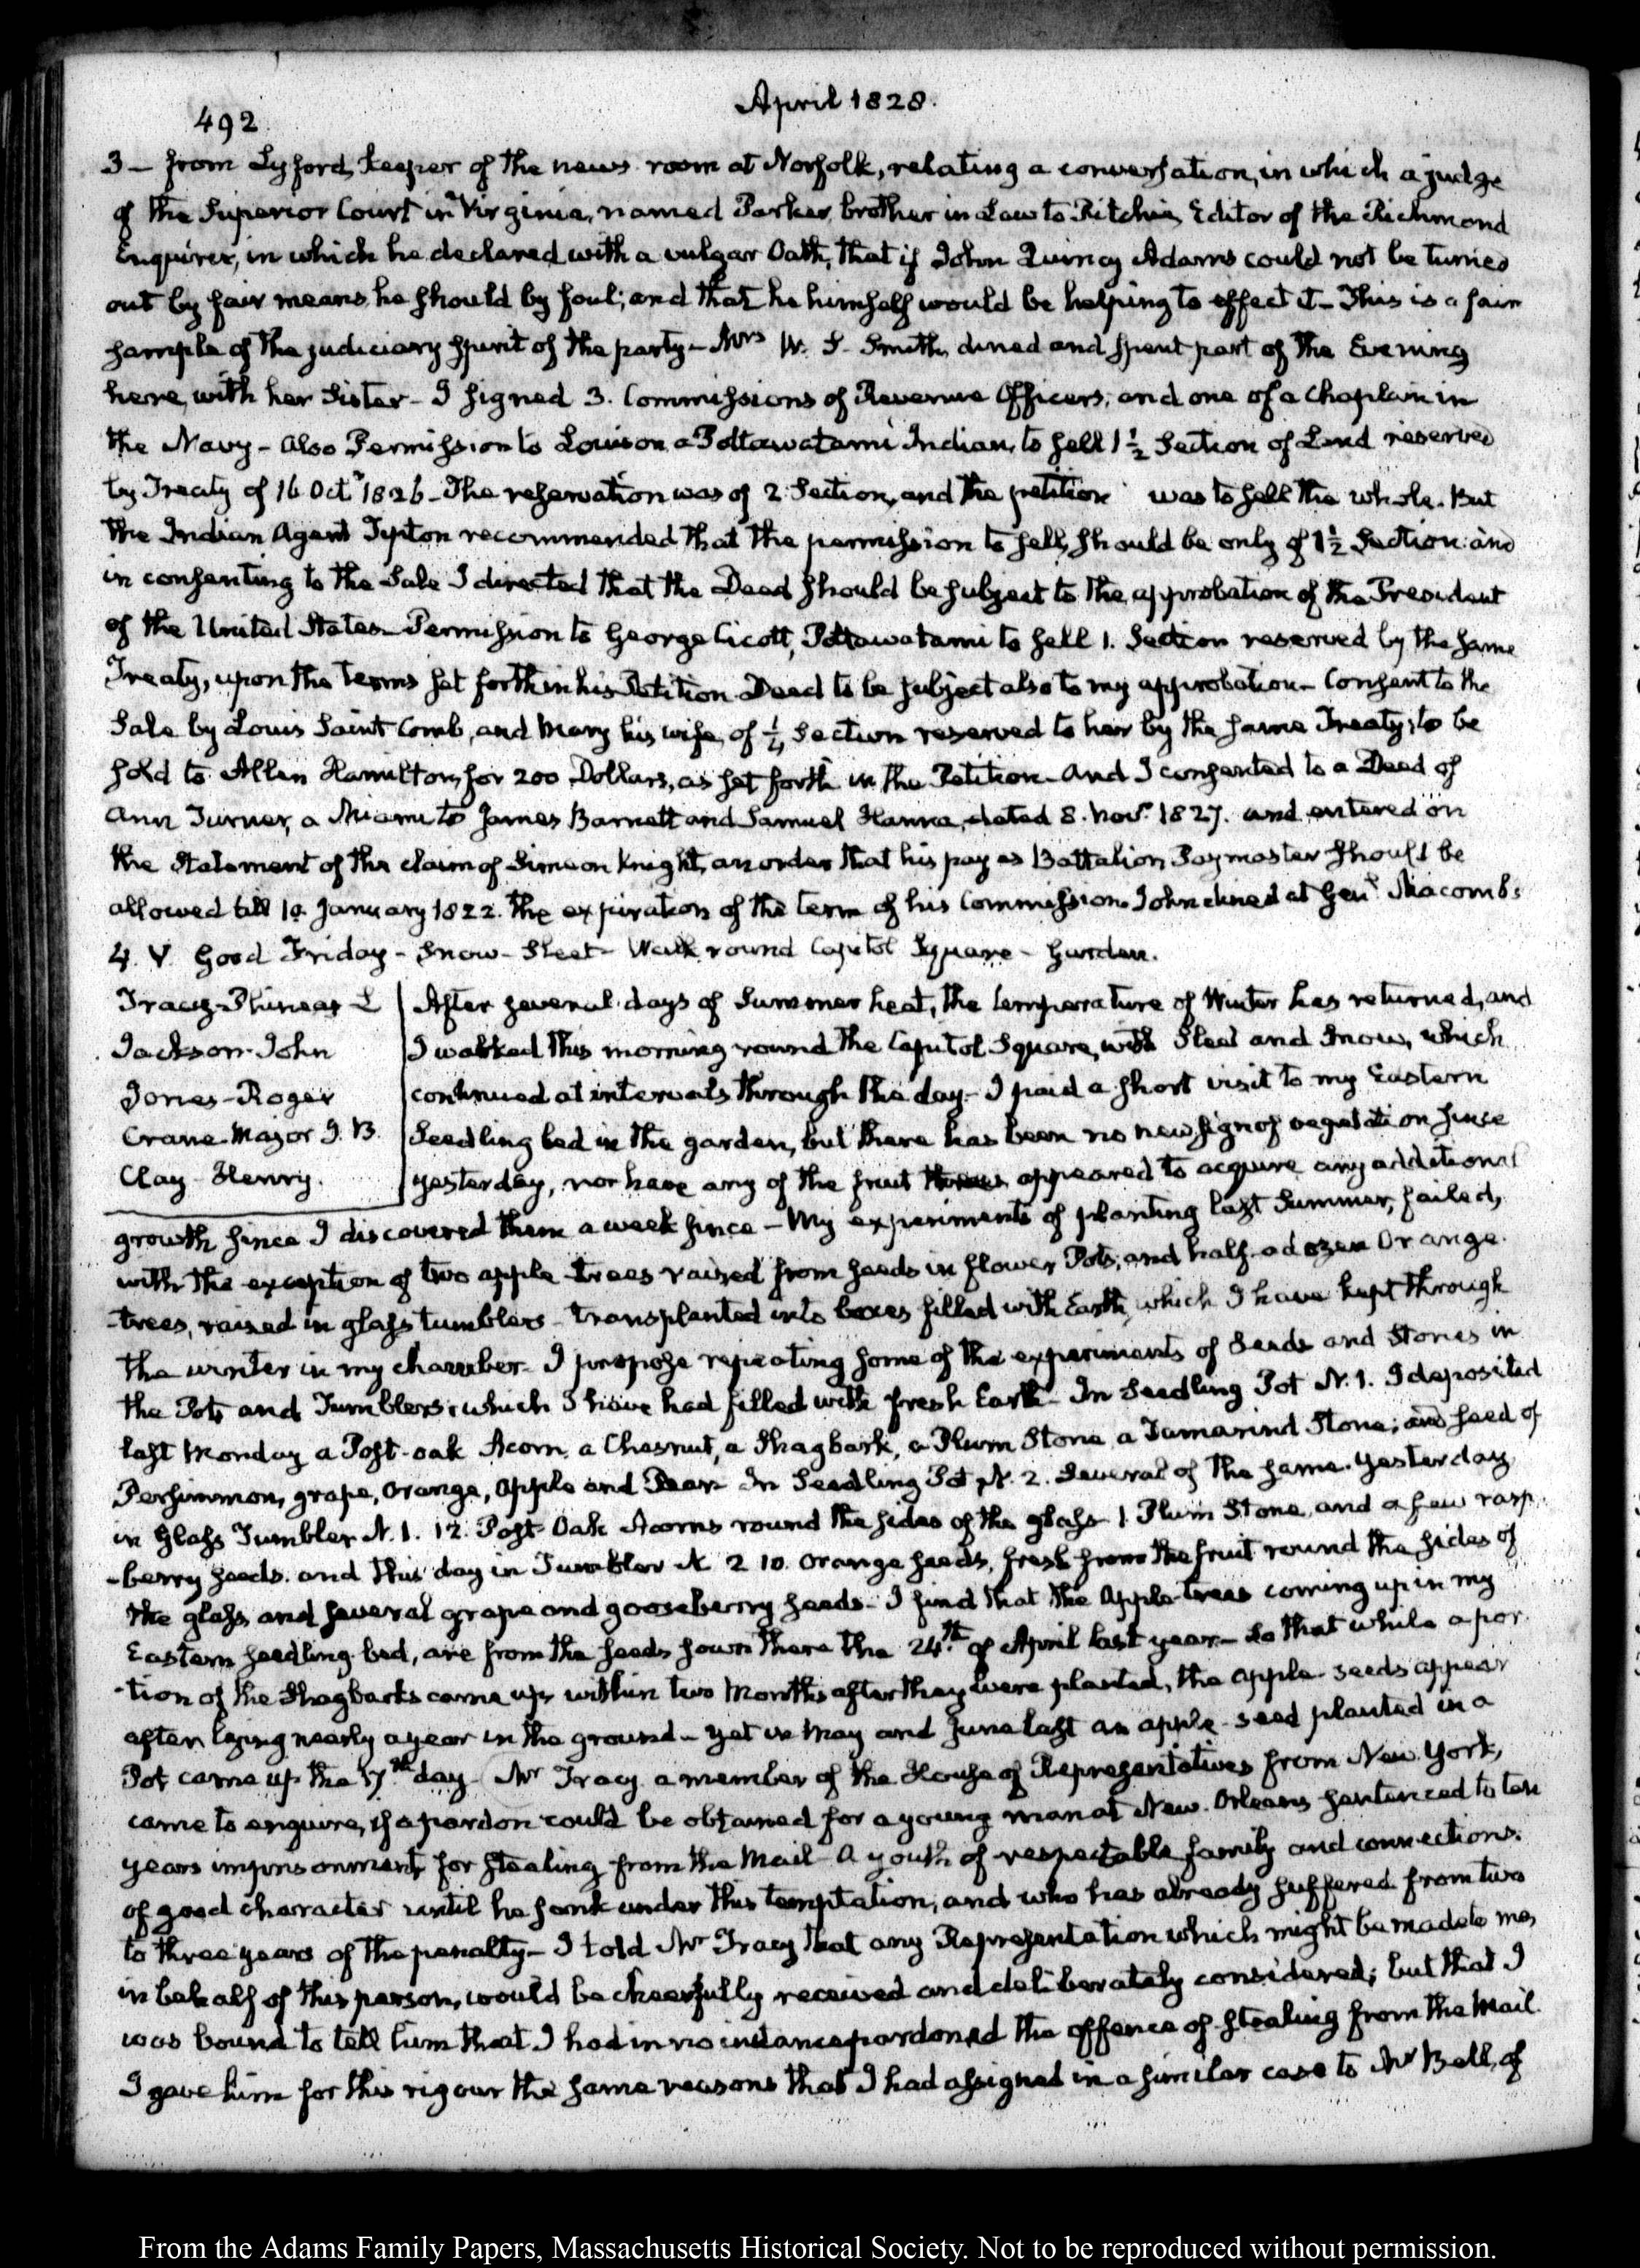 492
April 1828.
3 — from Lyford, keeper of the news room at Norfolk, relating a conversation, in which a judge
of the Superior Court in Virginia, named Parker, brother in Law to Ritchie, Editor of the Richmond
Enquirer, in which he declared with a vulgar Oath, that if John Quincy Adams could not be turned
out by fair means, he should by foul; and that he himself would be helping to effect it — This is a fair
sample of the judiciary spirit of the party — Mrs W. S. Smith, dined and spent part of the Evening
here, with her Sister — I signed 3. Commissions of Revenue Officers, and one of a Chaplain in
the Navy — also Permission to Louison a Pottawatami Indian, to sell 1½ Section of Land reserved
by Treaty of 16 Octr 1826 — The reservation was of 2 Section, and the petition was to sell the whole. But
the Indian Agent Tipton recommended that the permission to sell, should be only of 1½ Section: and
in consenting to the Sale I directed that the Deed should be subject to the approbation of the President
of the United States — Permission to George Cicott, Pottawatami to sell 1. Section reserved by the same
Treaty, upon the terms set forth in his Petition — Deed to be subject also to my approbation — Consent to the
Sale by Louis Saint Comb, and Mary his wife, of ½ Section reserved to her by the same Treaty; to be
sold to Allen Hamilton, for 200 Dollars, as set forth in the Petition — And I consented to a Deed of
Ann Turner, a Miami to James Barnett and Samuel Hanna, dated 8. Novr. 1827. and entered on
the Statement of the claim of Simeon Knight, an order that his pay as Battalion Paymaster should be
allowed till 19. January 1822. the expiration of the term of his Commission. John dined at Genl Macomb's
4. V. Good Friday — Snow — Sleet — Walk round Capitol Square — Garden.
Tracy — Phineas L
Jackson — John
Jones — Roger
Crane — Major I. B.
Clay — Henry.
After several days of Summer heat, the temperature of Winter has returned, and
I walked this morning round the Capitol Square, with Sleet and Snow, which
continued at intervals through the day — I paid a short visit to my Eastern
Seedling bed in the garden, but there has been no new sign of vegetation since
yesterday, nor have any of the fruit appeared to acquire any additional
growth since I discovered them a week since — My experiments of planting last Summer, failed,
with the exception of two apple trees raised from seeds in flower Pots; and half a dozen Orange
-trees, raised in glass tumblers — transplanted into boxes filled with Earth, which I have kept through
the winter in my chamber — I propose repeating some of the experiments of Seeds and Stones in
the Pots and Tumblers, which I have had filled with fresh Earth — In Seedling Pot N. 1. I deposited
last Monday a Post-oak Acorn, a Chesnut, a Shagbark, a Plum Stone, a Tamarind Stone; and seed of
Persimmon, grape, Orange, Apple and Pear — In Seedling Pot N. 2. Several of the same. Yesterday
in Glass Tumbler N. 1. 12. Post-Oak Acorns round the sides of the glass — 1. Plum Stone, and a few rasp
-berry seeds. and this day in Tumbler N. 2 10. Orange seeds, fresh from the fruit round the sides of
the glass, and several grape and gooseberry seeds — I find that the Apple trees coming up in my
Eastern seedling bed, are from the seeds sown there the 24th. of April last year — So that while a por
-tion of the Shagbarks came up, within two Months after they were planted, the apple seeds appear
after lying nearly a year in the ground — yet in May and June last an apple-seed planted in a
Pot came up the 17th day — Mr Tracy a member of the House of Representatives from New York,
came to enquire, if a pardon could be obtained for a young man at New-Orleans sentenced to ten
years imprisonment, for stealing from the Mail — A youth of respectable family and connections.
of good character until he sank under this temptation, and who has already suffered from two
to three years of the penalty — I told Mr Tracy that any Representation which might be made to me,
in behalf of this person, would be cheerfully received and deliberately considered; but that I
was bound to tell him that I had in no instance pardoned the offence of stealing from the Mail.
I gave him for this rigour the same reasons that I had assigned in a similar case to Mr Bell, of
From the Adams Family Papers, Massachusetts Historical Society. Not to be reproduced without permission.